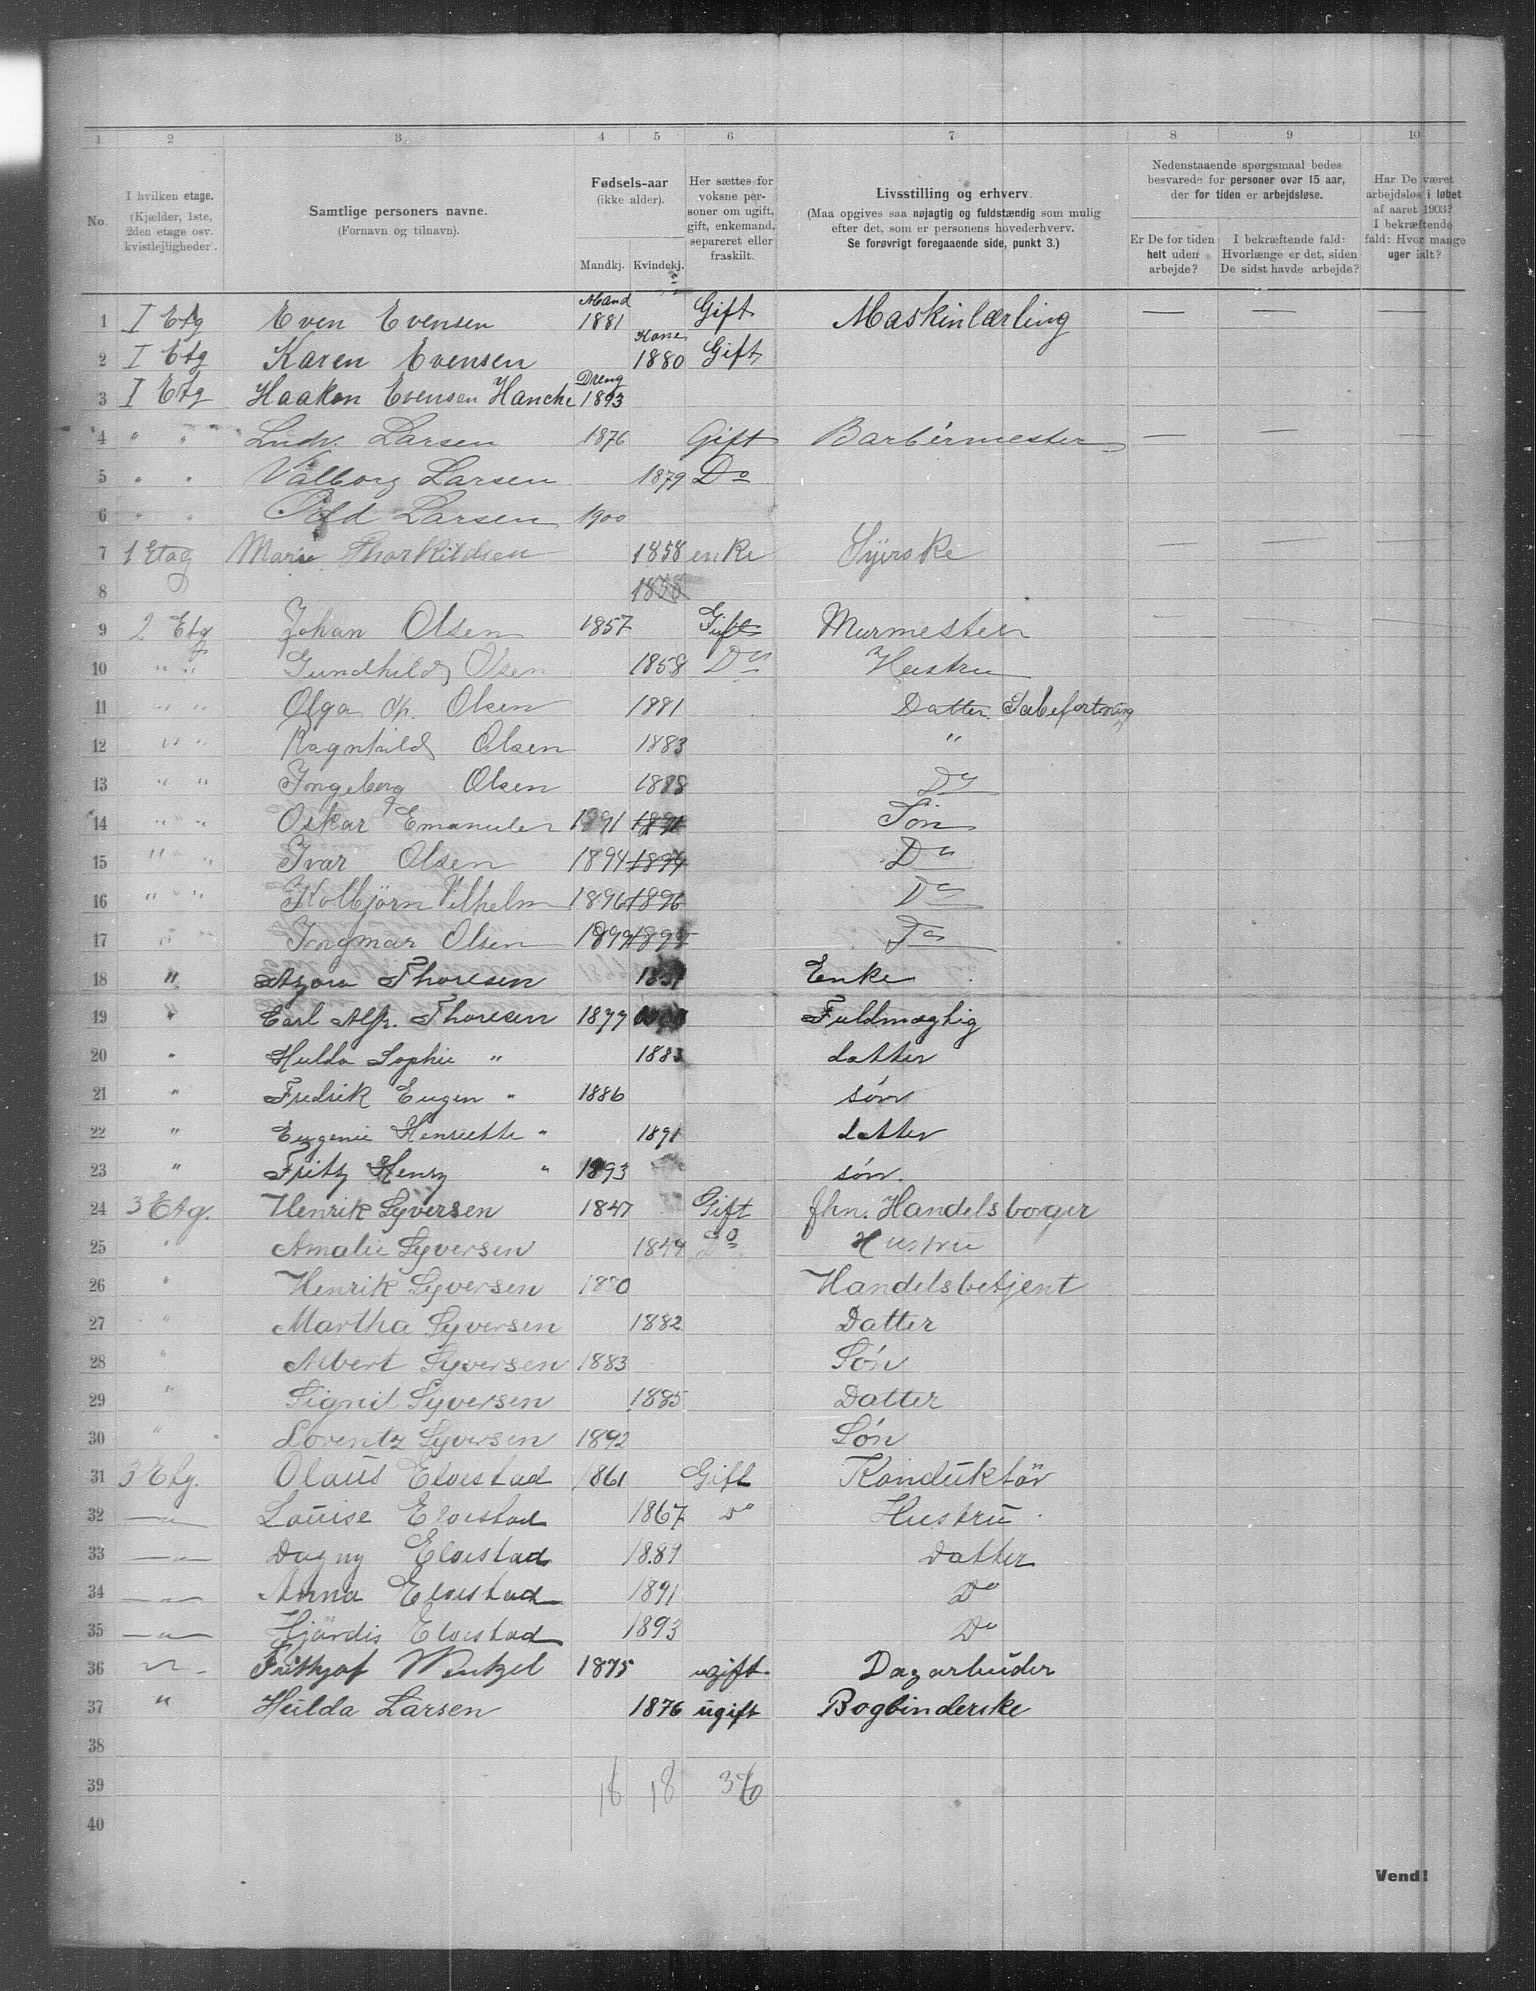 1 2 3 4 5 6 7 8 9 10
No. I hvilken etage. (Kjælder, 1ste, 2den etage osv. kvistlejligheder). Samtlige personers navne. (Fornavn og tilnavn). Fødsels-aar (ikke alder). Mandkj. Kvindekj. Her sættes for voksne personer om ugift, gift, enkemand, separeret eller fraskilt. Livsstilling og erhverv. (Maa opgives saa nøjagtig og fuldstændig som mulig efter det, som er personens hovederhverv. Se forøvrigt foregaaende side, punkt 3.) Nedenstaaende spørgsmaal bedes besvarede for personer over 15 aar, der for tiden er arbejdsløse. Er De for tiden helt uden arbejde? I bekræftende fald: Hvorlænge er det, siden De sidst havde arbejde? Har De været arbejdsløs i løbet af aaret 1903? I bekræftende fald: Hvor mange uger ialt?
1 I Etg Even Evensen Mand 1881 Gift Maskinlærling — — —
2 I Etg Karen Evensen Kone 1880 Gift
3 I Etg Haakon Evensen Hanche Dreng 1893
4 " " Ludv. Larsen 1876 Gift Barbermester — — —
5 " " Valborg Larsen 1879 Do
6 " " Larsen 1900
7 1 Etag Marie Thorkildsen 1858 enke Syerske — — —
8 1838
9 2 Etg Johan Olsen 1857 Gift Murmester — — —
10 " " Gundhild Olsen 1858 Do Hustru
11 " " Olga Olsen 1881 Datter
12 " " Ragnhild Olsen 1883 "
13 " " Ingeborg Olsen 1888 Do
14 " " Oskar Emanuel 1891 1891 Søn
15 " " Ivar Olsen 1894 1894 Do
16 " " Kolbjörn Vilhelm 1896 1896 Do
17 " " Ingmar Olsen 1899 1899 Do
18 " Thoresen Enke
19 " Carl Alfr. Thoresen 1877 Fuldmægtig
20 " Hulda Sophie " 1883 datter
21 " Fredrik Eugen " 1886 søn
22 " Eugenie Henriette " 1891 datter
23 " Fritz Henry " 1893 søn.
24 3 Etg. Henrik Syversen 1847 Gift fhn. Handelsborger
25 " Amalie Syversen 1844 Do Hustru
26 " Henrik Syversen 1880 Handelsbetjent
27 " Martha Syversen 1882 Datter
28 " Albert Syversen 1883 Søn
29 " Sigrid Syversen 1885 Datter
30 " Lorentz Syversen 1892 Søn
31 3 Etg. Olaus Elvestad 1861 Gift Konduktör
32 —"— Louise Elvestad 1867 Do Hustru
33 —"— Dagny Elvestad 1889 Datter
34 —"— Anna Elvestad 1891 Do
35 —"— Hjördis Elvestad 1893 Do
36 —"— Frithjof Wentzel 1875 ugift Dagarbeider
37 " Hulda Larsen 1876 ugift Bogbinderske
38
39 18 18 36
40
Vend!